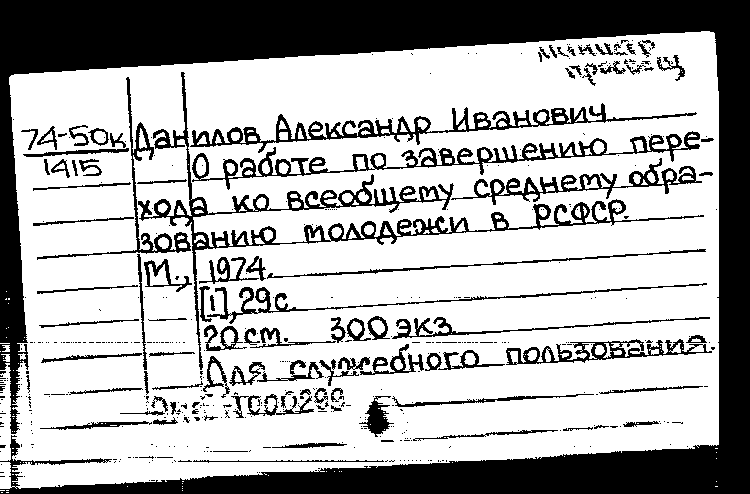 министр
просвещ
74-50к Данилов, Александр Иванович
1415 О работе по завершению пере-
хода ко всеобщему среднему обра-
зованию молодежи в РСФСР.
М., 1974.
[1], 29 с.
20 см. 300 экз.
Для служебного пользования.
Экз. №000299